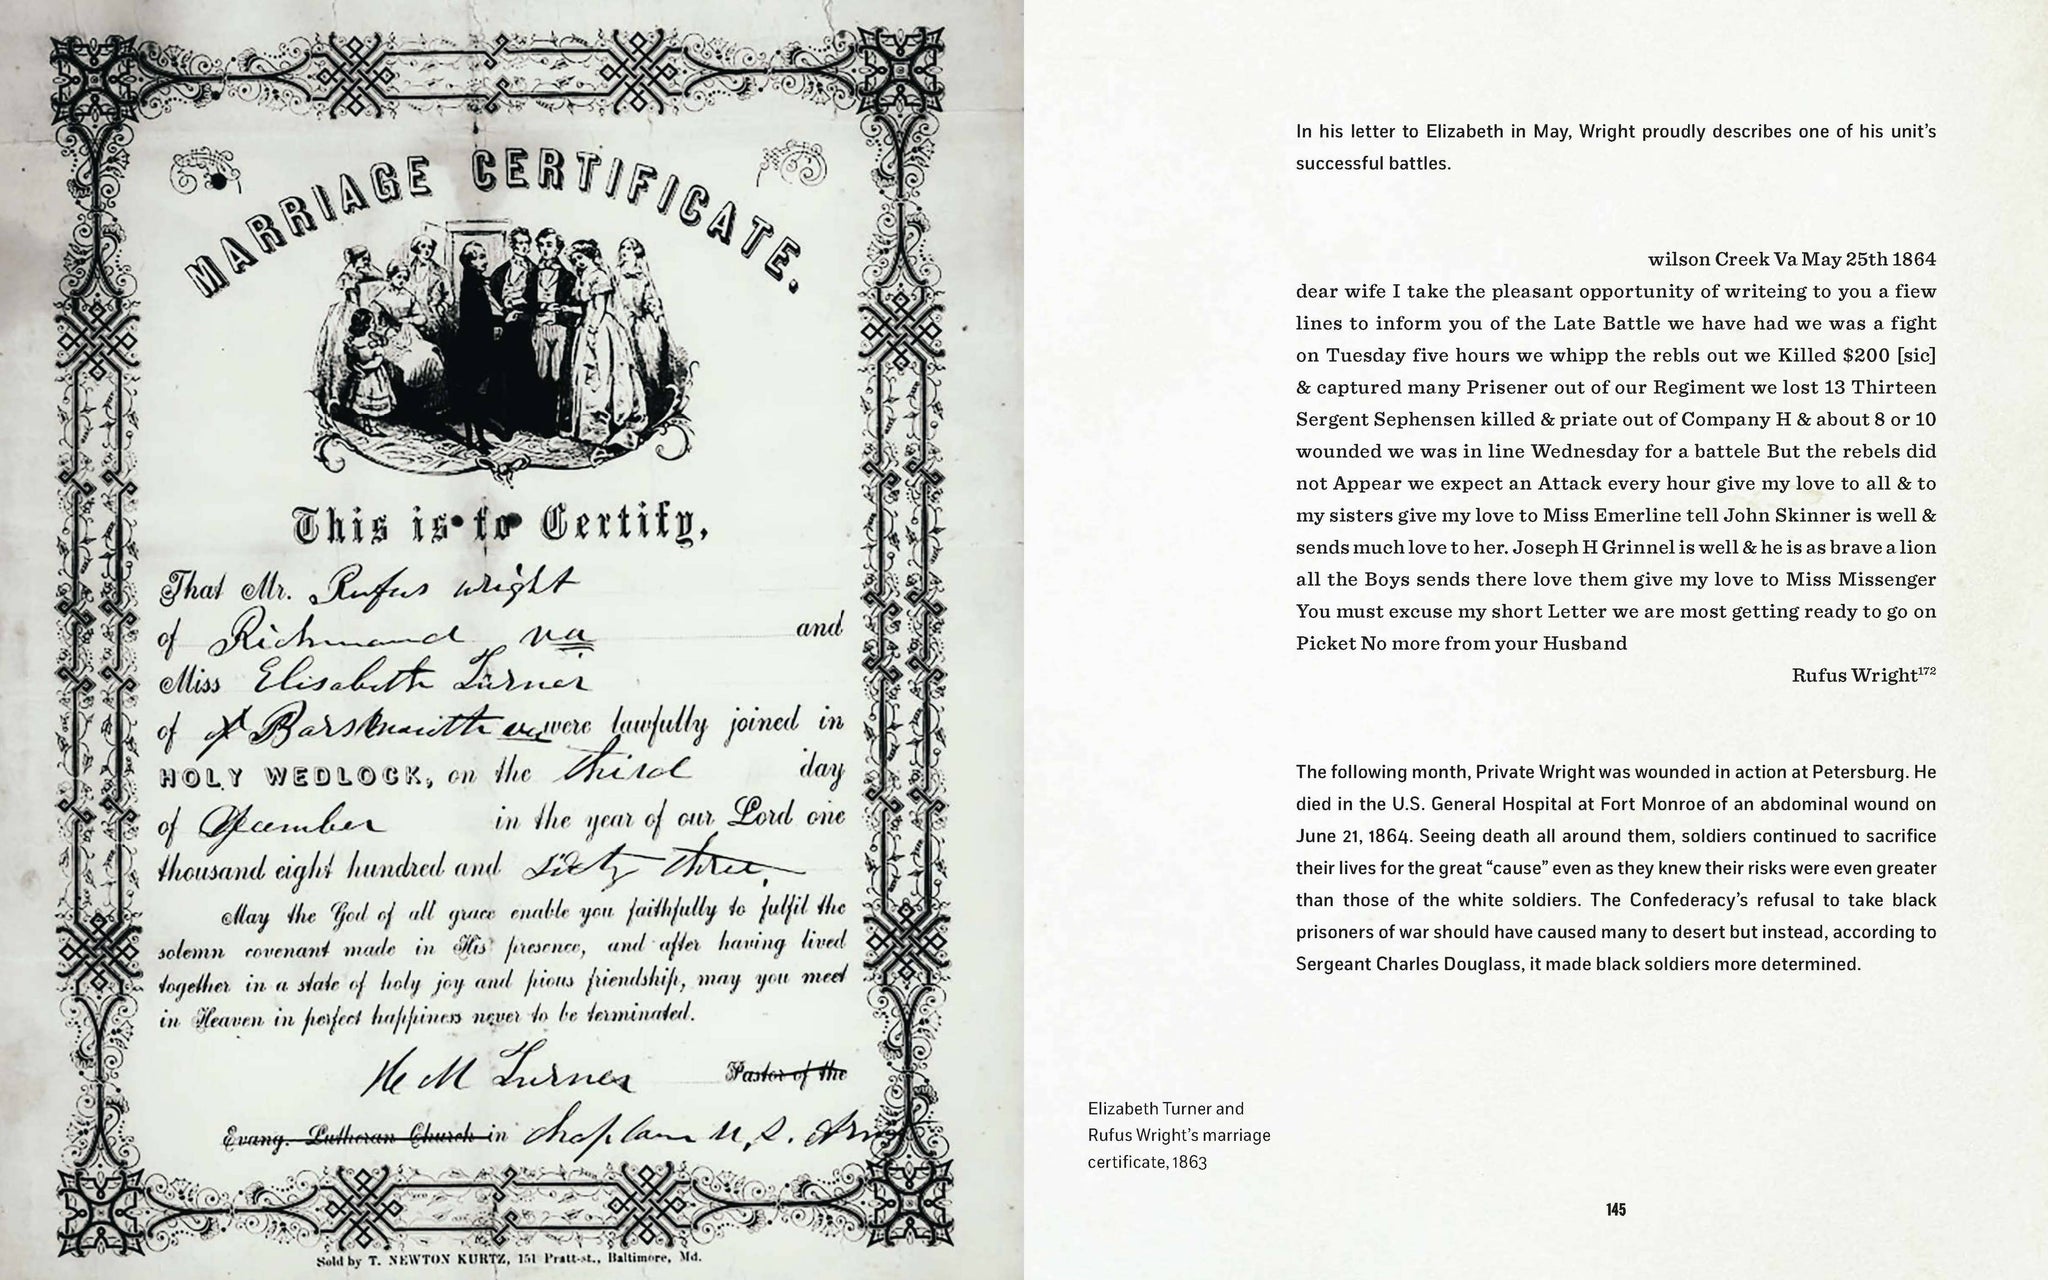 MARRIAGE CERTIFICATE.
This is to Certify,
That Mr. Rufus wright
of Richmand va and
Miss Elisabeth Turner
of were lawfully joined in
HOLY WEDLOCK, on the third day
of December in the year of our Lord one
thousand eight hundred and sixty three,
May the God of all grace enable you faithfully to fulfil the
solemn covenant made in His presence, and after having lived
together in a state of holy joy and pious friendship, may you meet
in Heaven in perfect happiness never to be terminated.
H M Turner Pastor of the
Evang. Lutheran Church in chaplain U, S. Army
Sold by T. NEWTON KURTZ, 151 Pratt-st., Baltimore, Md.
In his letter to Elizabeth in May, Wright proudly describes one of his unit's
successful battles.
wilson Creek Va May 25th 1864
dear wife I take the pleasant opportunity of writeing to you a fiew
lines to inform you of the Late Battle we have had we was a fight
on Tuesday five hours we whipp the rebls out we Killed $200 [sic]
& captured many Prisener out of our Regiment we lost 13 Thirteen
Sergent Sephensen killed & priate out of Company H & about 8 or 10
wounded we was in line Wednesday for a battele But the rebels did
not Appear we expect an Attack every hour give my love to all & to
my sisters give my love to Miss Emerline tell John Skinner is well &
sends much love to her. Joseph H Grinnel is well & he is as brave a lion
all the Boys sends there love them give my love to Miss Missenger
You must excuse my short Letter we are most getting ready to go on
Picket No more from your Husband
Rufus Wright172
The following month, Private Wright was wounded in action at Petersburg. He
died in the U.S. General Hospital at Fort Monroe of an abdominal wound on
June 21, 1864. Seeing death all around them, soldiers continued to sacrifice
their lives for the great "cause" even as they knew their risks were even greater
than those of the white soldiers. The Confederacy's refusal to take black
prisoners of war should have caused many to desert but instead, according to
Sergeant Charles Douglass, it made black soldiers more determined.
Elizabeth Turner and
Rufus Wright's marriage
certificate, 1863
145